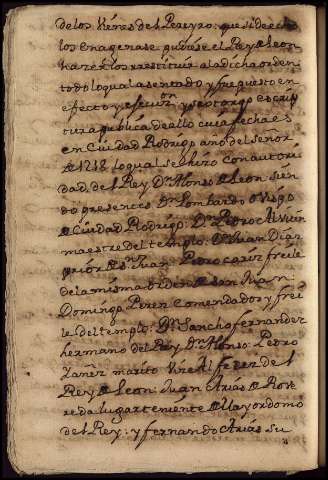 de los vienes del Pereyro: que si de echo
los enagenase pudiese el Rey de Leon
hazerlos rrestituir a la dicha orden
todo lo qual asentado y fue puesto en
efecto y esecuzion y se otorgo escrip
tura publica de ello cuia fecha es
en Ciudad Rodrigo año del señor
de 1218 lo qual se hizo con autori
dad del Rey Dn Alonso de Leon sien
do presentes Dn Lombardo Obispo
de Ciudad Rodrigo: Dn Pedro
maestre del templo: Dn Juan Diaz
prior de Sn Juan: Pedro freile
de la misma orden de san Juan:
Domingo Perez Comendador y frei
le del templo: Dn Sancho fernandez
hermano del Rey Dn Alonso: Pedro
Yañez marito Vire Alferez del
Rey de Leon: Juan Arias de
reda lugarteniente de Mayordomo
del Rey: y fernando Arias su